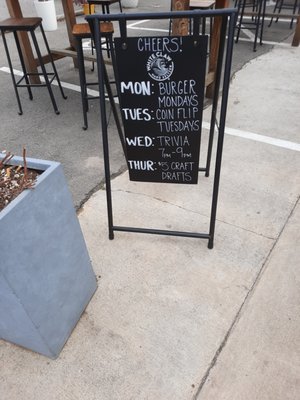 CHEERS!
WHITE CLAW
MON: BURGER
MONDAYS
TUES: COIN FLIP
TUESDAYS
WED: TRIVIA
7PM-9PM
THUR: $5 CRAFT
DRAFTS